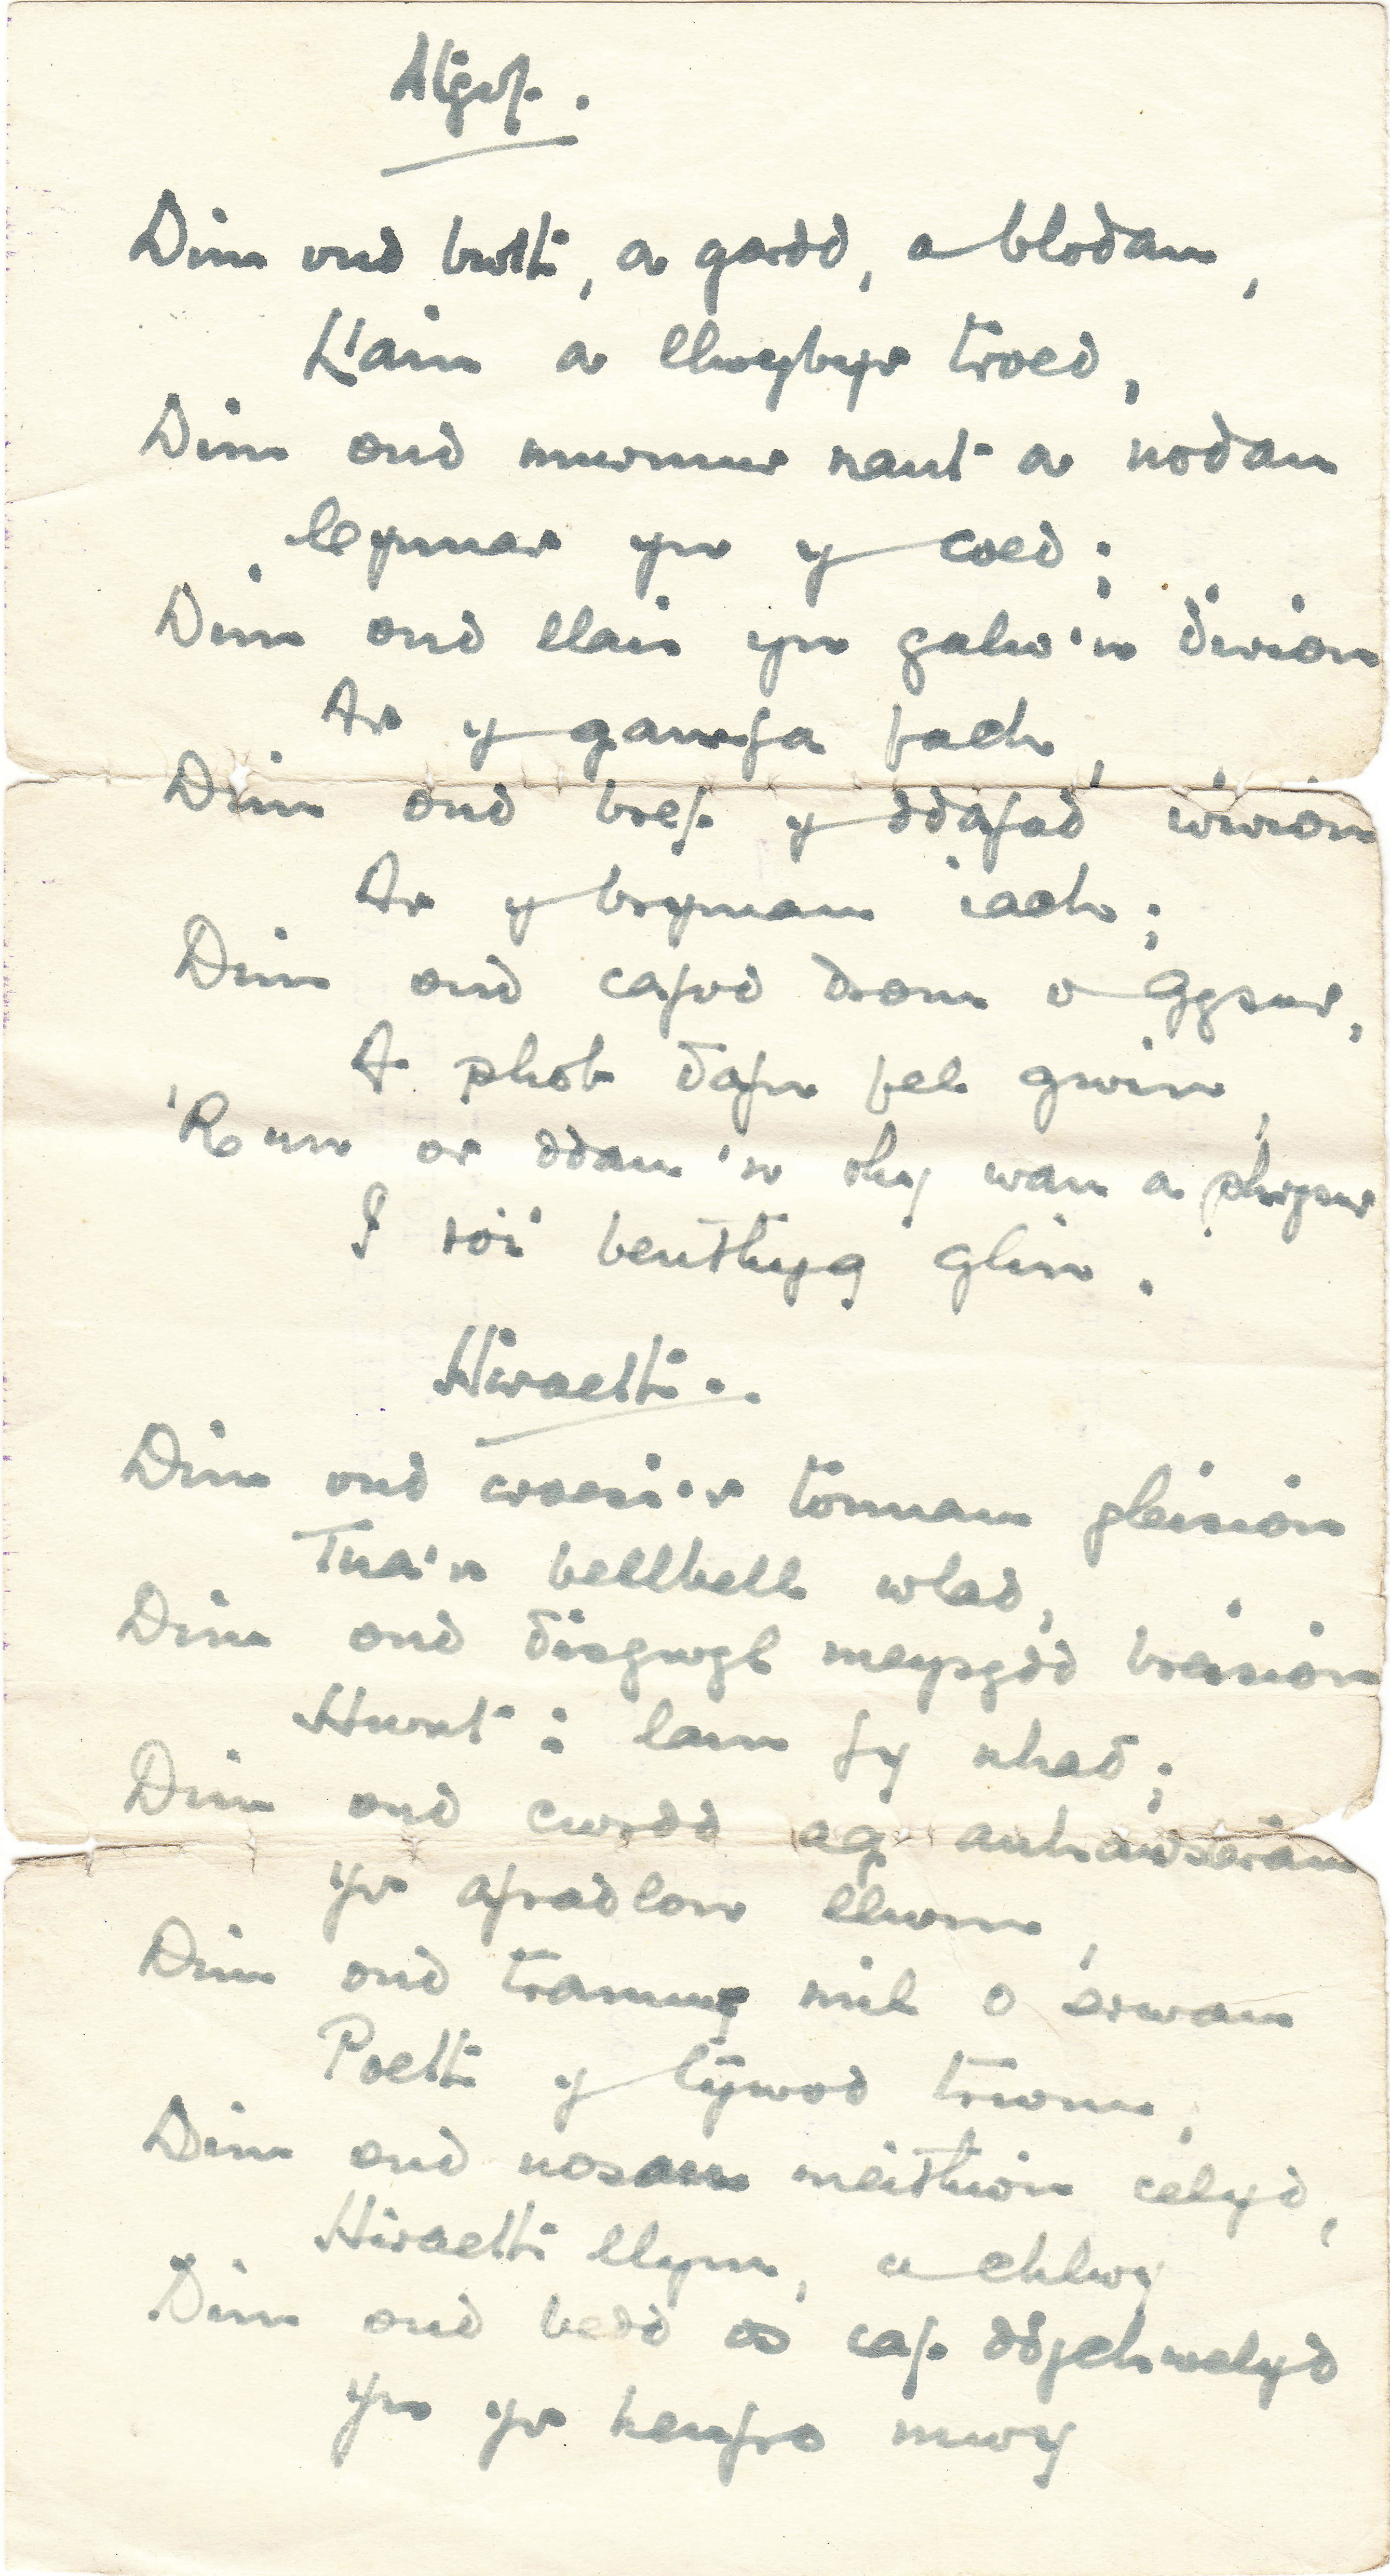 Atgof.
Dim ond bwth, a gardd, a blodau,
Llain a llwybyr troed,
Dim ond murmur nant a nodau
Cymar yn y coed;
Dim ond llais yn galw'n dirion
Ar y gamfa fach,
Dim ond bref y ddafad wirion
Ar y bryniau iach;
Dim ond cafod drom o gysur,
A phob dafn fel gwin,
'R un or ddau 'n rhy wan a phrysur
I roi benthyg glin.
Hiraeth..
Dim ond croesi'r tonnau gleision
Tua'r bellbell wlad,
Dim ond disgwyl meysydd breision
Hwnt i lain fy nhad;
Dim ond cwrdd ag anhawserau
Yr afradlon llwm,
Dim ond tramwy mil o erwau
Poeth y tywod trwm,
Dim ond nosau meithion celyd,
Hiraeth llym, a chlwy
Dim ond bedd os caf ddychwelyd
Yn yr henfro mwy